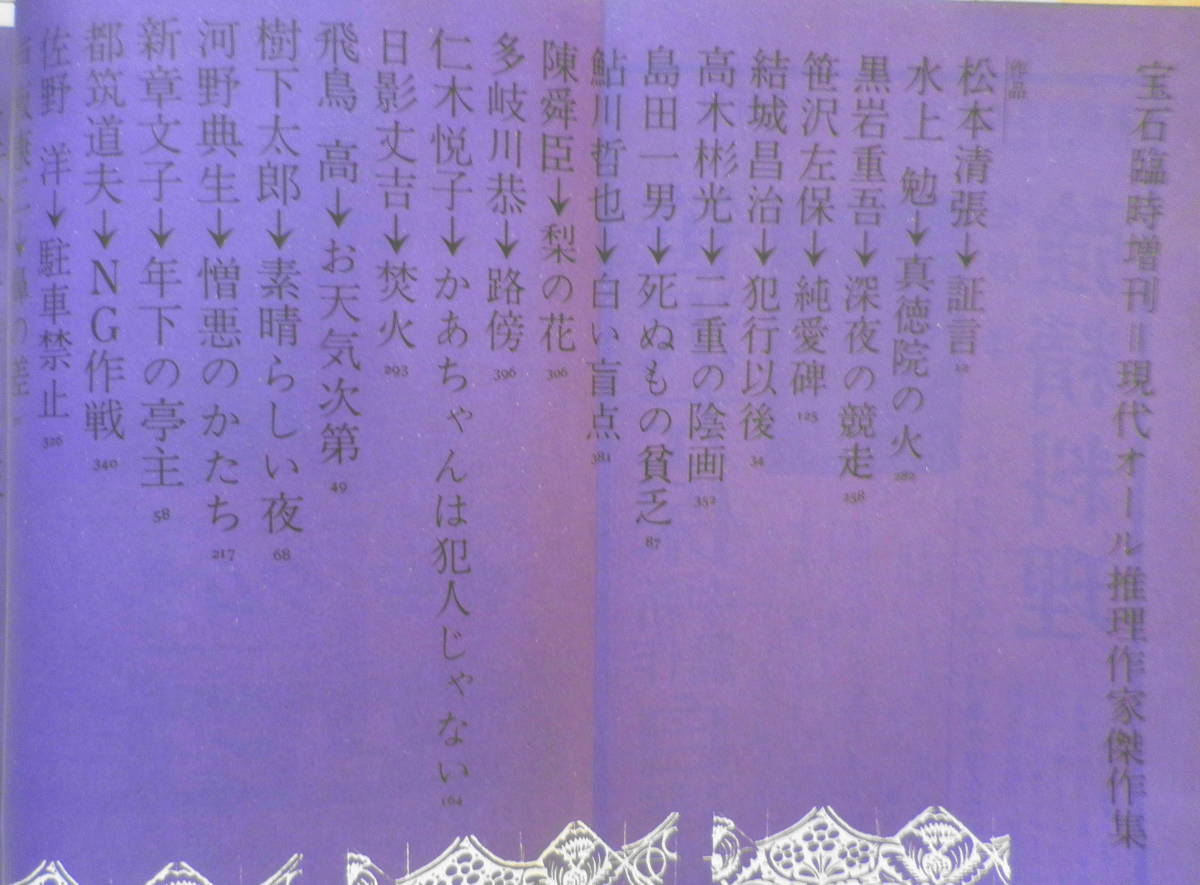 宝石臨時増刊＝現代オール推理作家傑作集
作品
松本清張→証言 12
水上 勉→真徳院の火 282
黒岩重吾→深夜の競走 258
笹沢左保→純愛碑 125
結城昌治→犯行以後 34
高木彬光→二重の陰画 352
島田一男→死ぬもの貧乏 87
鮎川哲也→白い盲点 381
陳舜臣→梨の花 306
多岐川恭→路傍 396
仁木悦子→かあちゃんは犯人じゃない 164
日影丈吉→焚火 293
飛鳥 高→お天気次第 49
樹下太郎→素晴らしい夜 68
河野典生→憎悪のかたち 217
新章文子→年下の亭主 58
都筑道夫→NG作戦 340
佐野 洋→駐車禁止 326